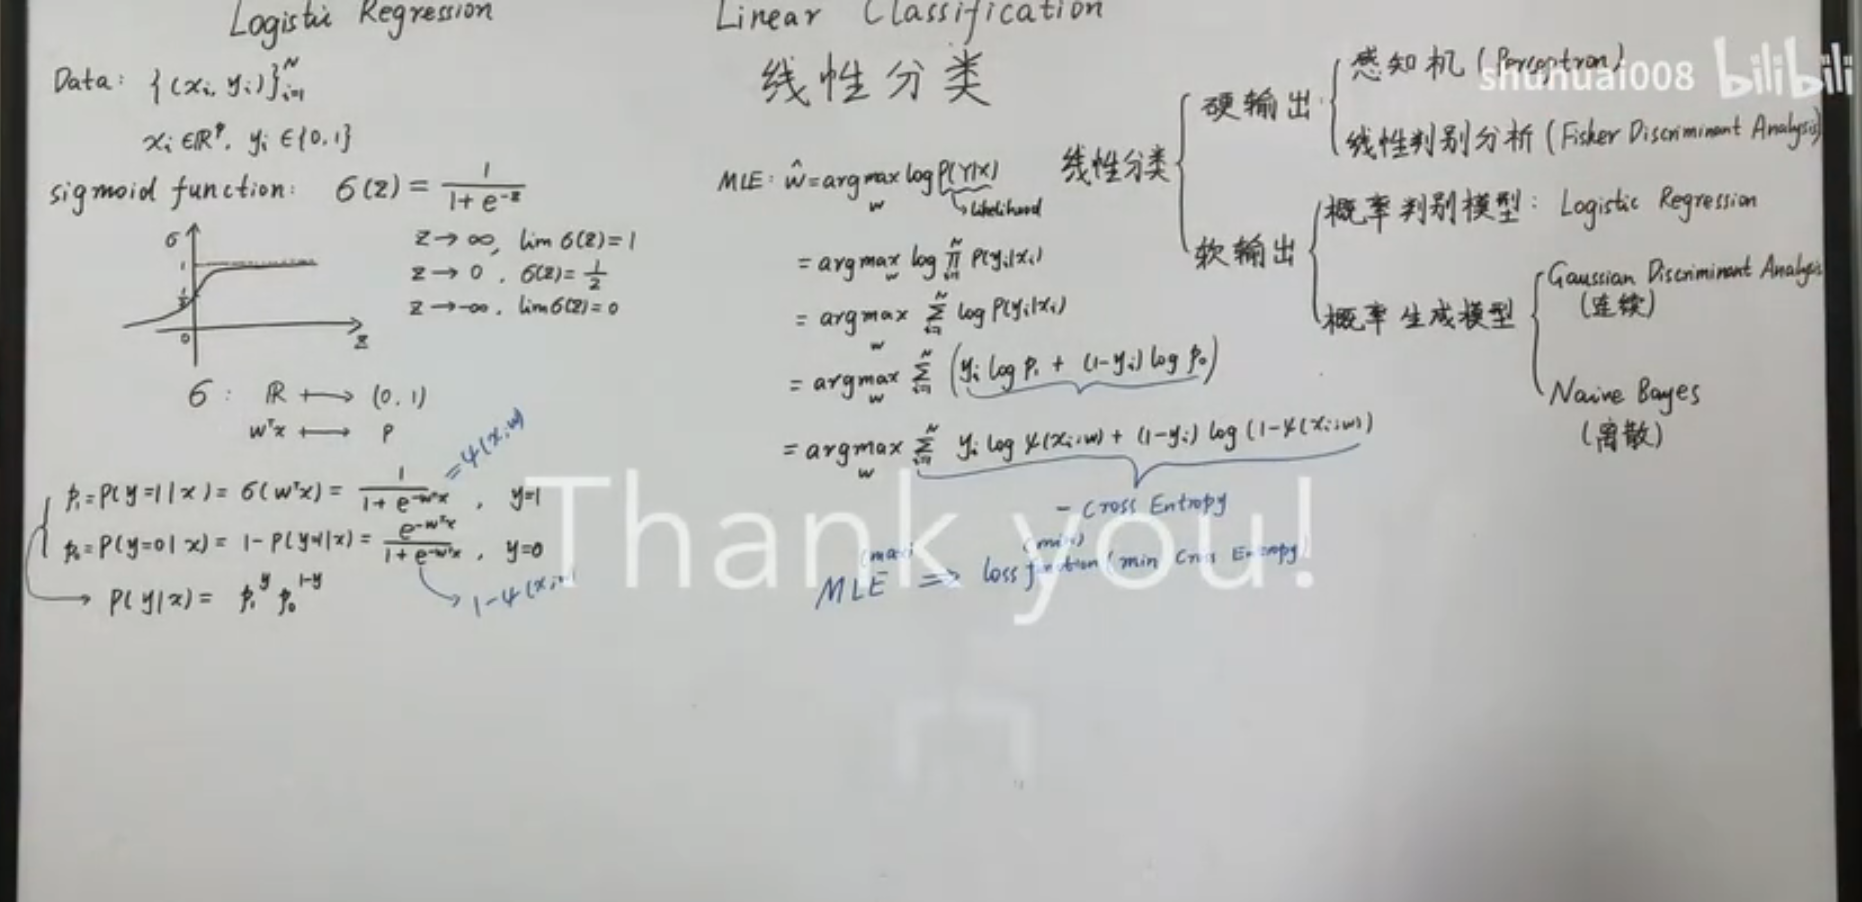 Logistic Regression
Data: {(xᵢ, yᵢ)}ᵢ₌₁ᴺ
xᵢ ∈ ℝᵖ, yᵢ ∈ {0,1}
sigmoid function: σ(z) = 1 / (1 + e^{-z})
σ
1
1/2
0
z
z → ∞, lim σ(z) = 1
z → 0, σ(z) = 1/2
z → -∞, lim σ(z) = 0
σ: ℝ ↦ (0,1)
wᵀx ↦ p
p₁ = P(y=1|x) = σ(wᵀx) = 1 / (1 + e^{-wᵀx}), y=1
= ψ(x;w)
p₀ = P(y=0|x) = 1 - P(y=1|x) = e^{-wᵀx} / (1 + e^{-wᵀx}), y=0
1 - ψ(x;w)
→ P(y|x) = p₁^y p₀^{1-y}
Linear Classification
线性分类
MLE: ŵ = argmax_w log P(Y|X)
likelihood
= argmax_w log ∏ᵢ₌₁ᴺ P(yᵢ|xᵢ)
= argmax_w ∑ᵢ₌₁ᴺ log P(yᵢ|xᵢ)
= argmax_w ∑ᵢ₌₁ᴺ (yᵢ log p₁ + (1-yᵢ) log p₀)
= argmax_w ∑ᵢ₌₁ᴺ yᵢ log ψ(xᵢ;w) + (1-yᵢ) log (1-ψ(xᵢ;w))
- Cross Entropy
(max) (min)
MLE ⇒ loss function (min Cross Entropy)
线性分类
硬输出
感知机 (Perceptron)
线性判别分析 (Fisher Discriminant Analysis)
软输出
概率判别模型: Logistic Regression
概率生成模型
Gaussian Discriminant Analysis
(连续)
Naive Bayes
(离散)
shuhuai008 bilibili
Thank you!